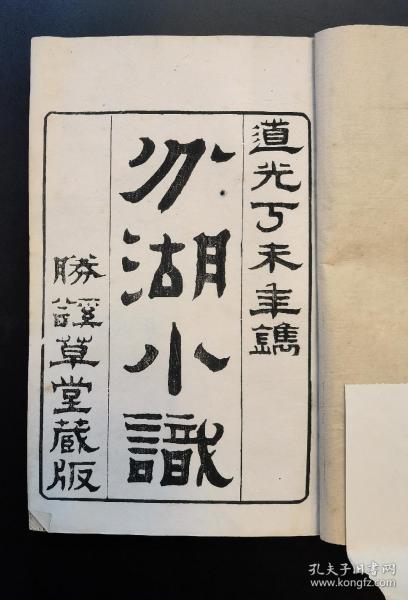 道光丁未年鐫
分湖小識
勝谿草堂藏版
孔夫子旧书网
www.kongfz.com